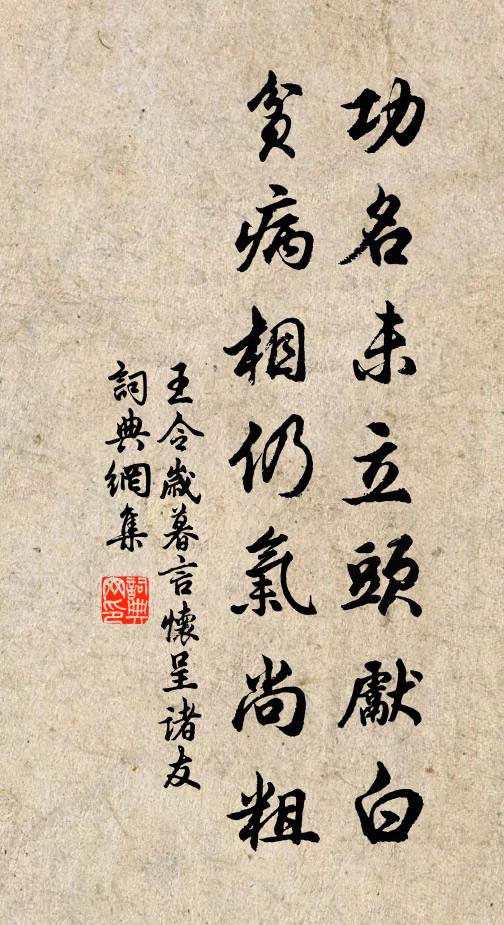 功名未立頭獻白
貧病相仍氣尚粗
王令歲暮言懷呈诸友
詞典網集
詞典网印